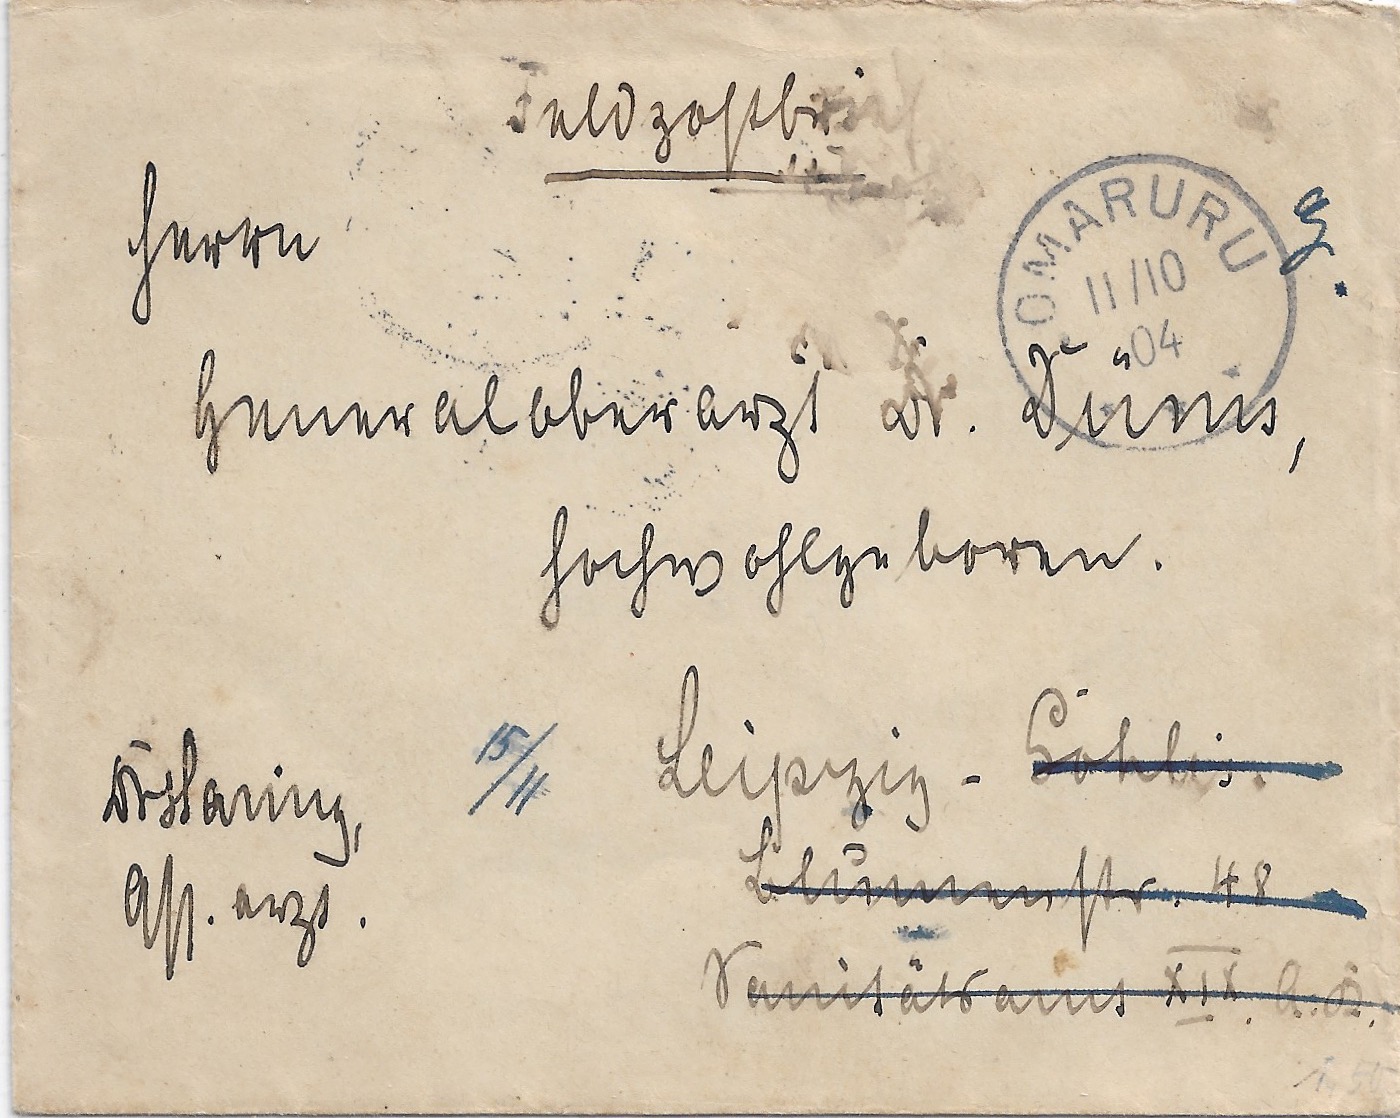 Feldpostbrief
OMARURU
11/10
04
g.
Herrn
Generaloberarzt Dr. Düms,
Hochwohlgeboren.
Leipzig - Gohlis.
Blumenstr. 48
Sanitätsamt XIX. A.K.
15/11
Ass. arzt.
1,50